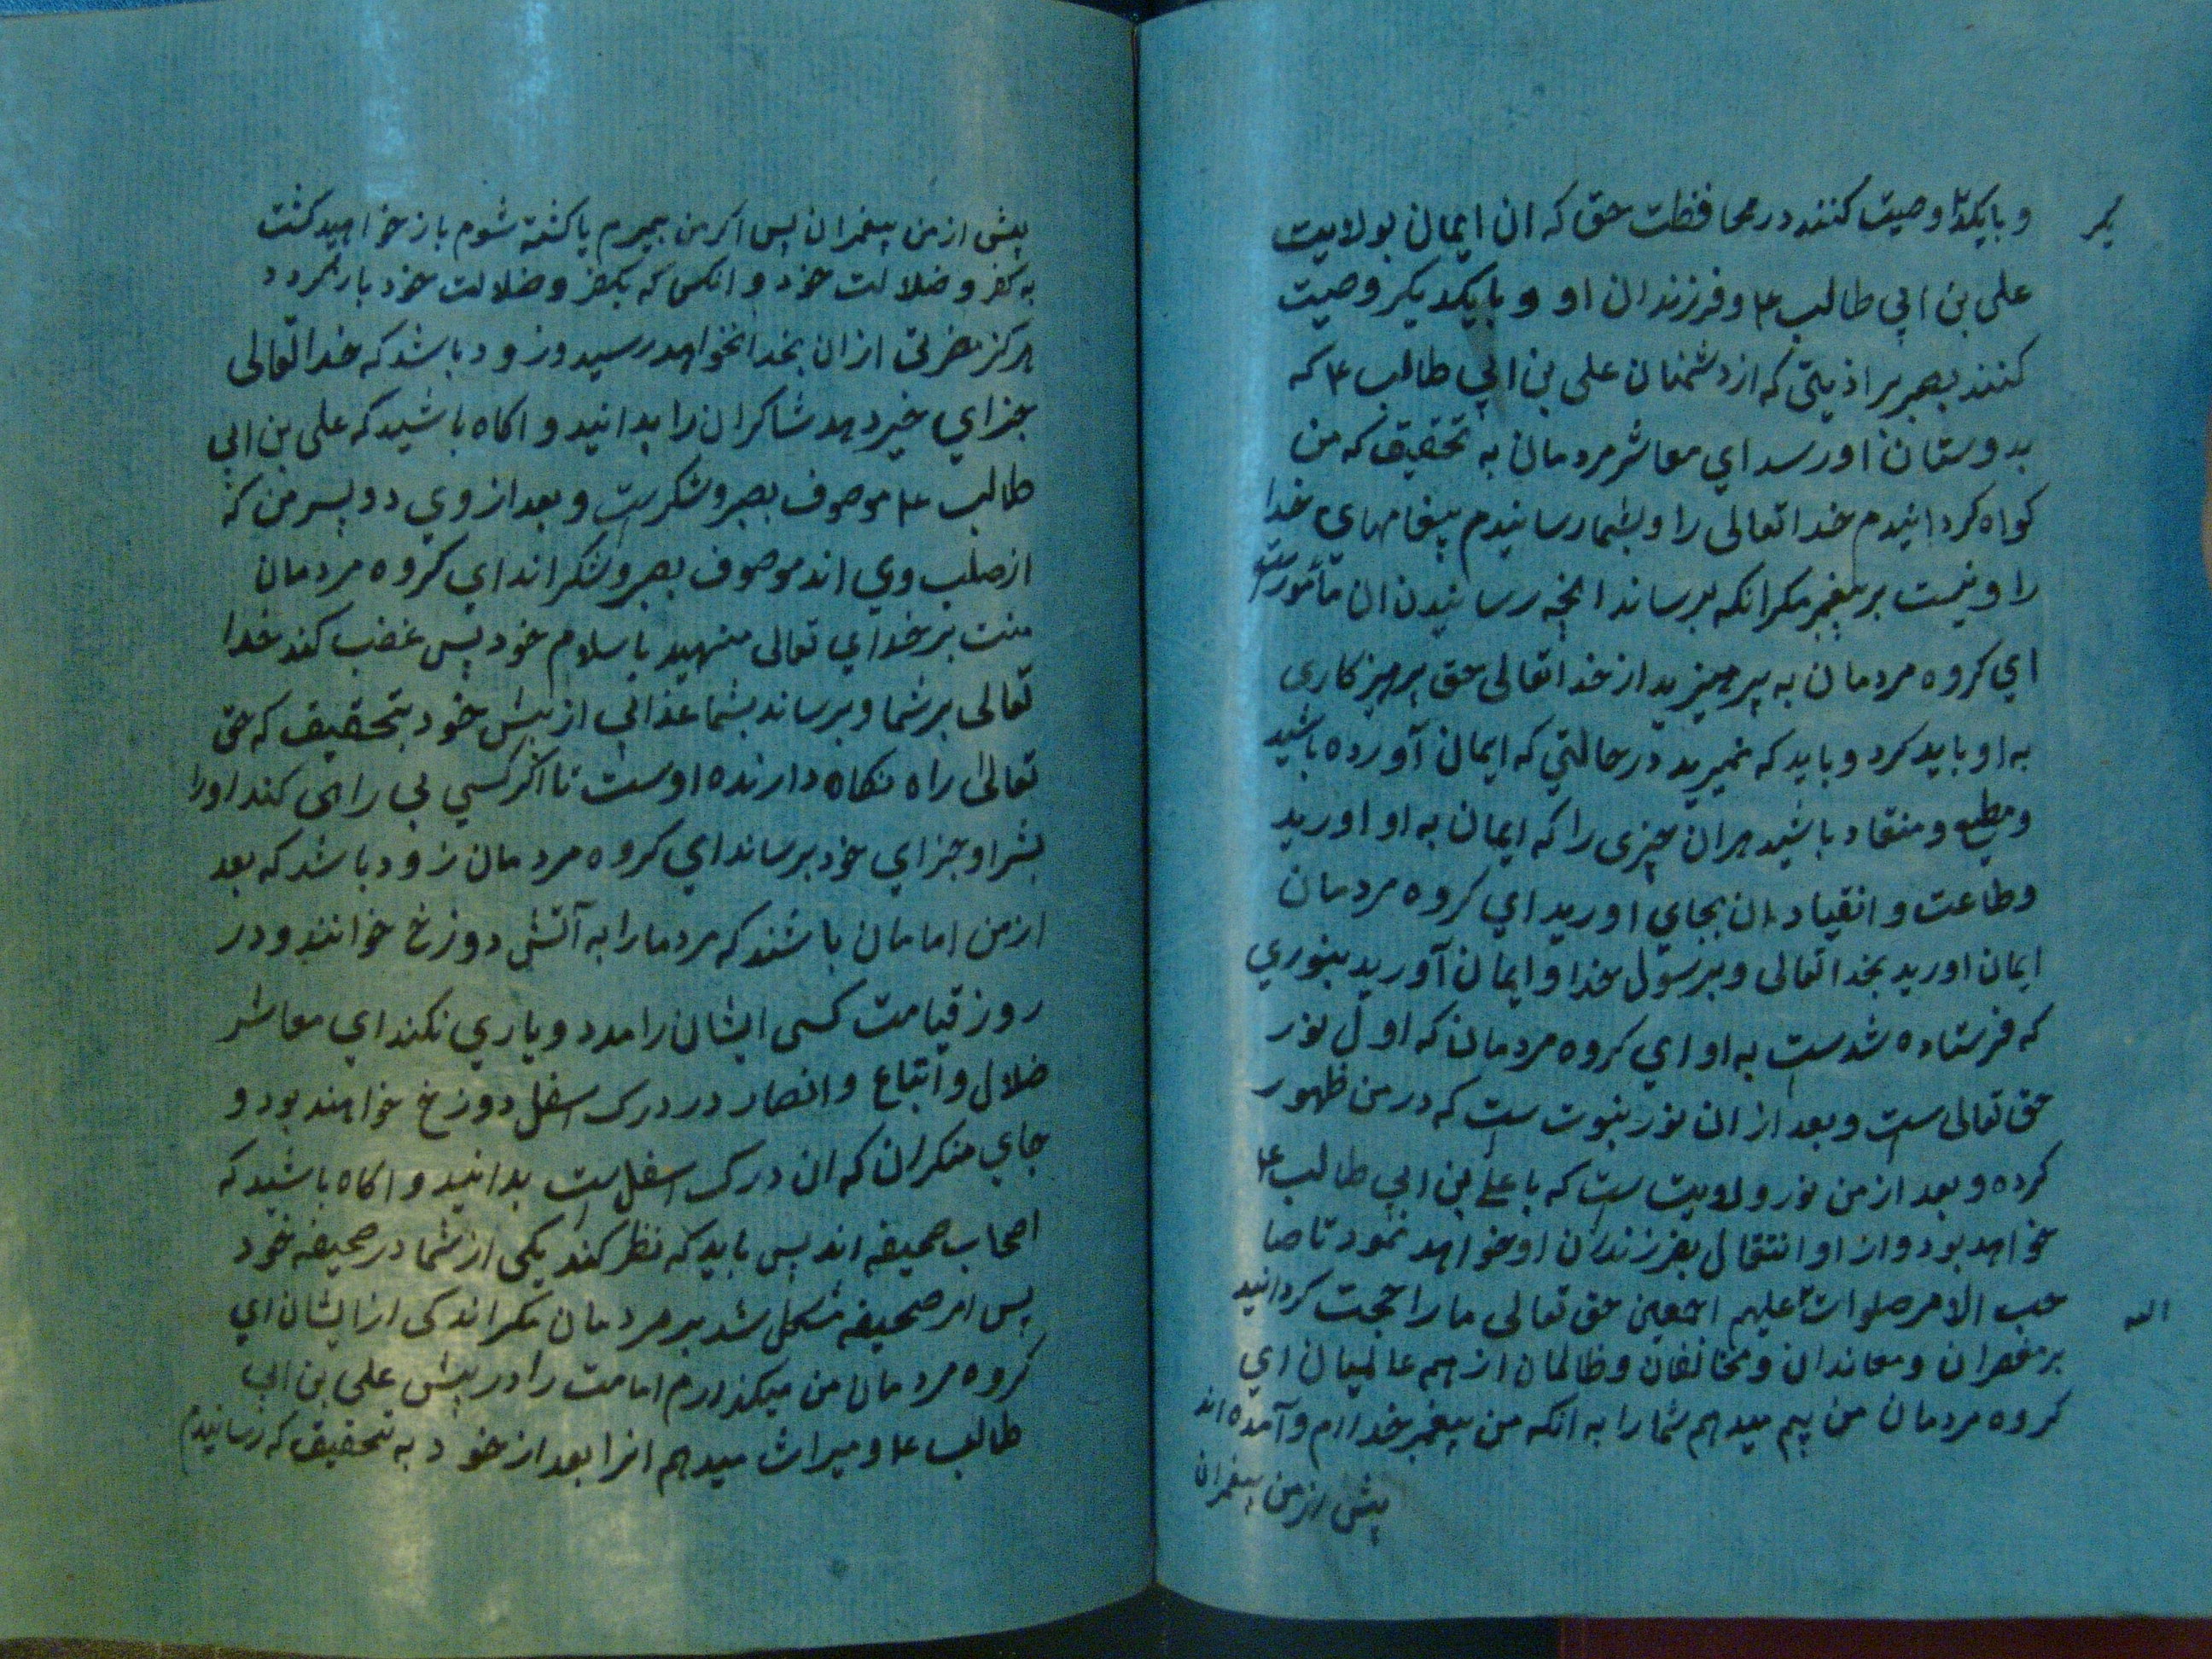 و بایکد وصیت کنند در محافظت حق که ان ایمان بولایت
یکر
علی بن ابی طالب ع و فرزندان او و بایکدیکر وصیت
کنند بصبر بر اذیتی که از دشمنان علی بن ابی طالب ع که
بدوستان او رسد ای معاشر مردمان به تحقیق که من
کواه کردانیدم خداتعالی را و بشما رسانیدم پیغامهای خدا
را و نیست بر پیغمبر مکر انکه برساند انچه رسانیدن ان مأمورست
ای کروه مردمان به پرهیزید از خداتعالی حق پرهیزکاری
به او باید کرد و باید که نمیرید در حالتی که ایمان آورده باشید
و مطیع و منقاد باشید هران چیزی را که ایمان به او اورید
و طاعت و انقیاد ان بجای اورید ای کروه مردمان
ایمان اورید بخداتعالی و برسول خدا و ایمان آورید بنوری
که فرستاده شدست به او ای کروه مردمان که اول نور
حق تعالی ست و بعد از ان نور نبوت ست که در من ظهور
کرده و بعد از من نور ولایت ست که با علی بن ابی طالب ع
خواهد بود و از او انتقال بفرزندان او خواهد نمود تا صا
حب الامر صلوات علیهم اجمعین حق تعالی ما را حجت کردانید
الله
بر مقصران و معاندان و مخالفان و ظالمان از همه عالمیان ای
کروه مردمان من بیم میدهم شما را به انکه من پیغمبر خداام و آمده اند
پیش از من پیغمران
پیش از من پیغمران پس اکر من بمیرم یا کشته شوم باز خواهید کشت
به کفر و ضلالت خود و انکس که بکفر و ضلالت خود باز کردد
هرکز مضرتی ازان بخدا نخواهد رسید و زود باشد که خداتعالی
جزای خیر دهد شاکران را بدانید و اکاه باشید که علی بن ابی
طالب ع موصوف بصبر و شکرست و بعد از وی دو پسر من که
از صلب وی اند موصوف بصبر و شکراند ای کروه مردمان
منت بر خدای تعالی منهید باسلام خود پس غضب کند خدا
تعالی بر شما و برساند بشما عذابی از پیش خود بتحقیق که حق
تعالی راه نکاه دارنده اوست تا اکر کسی بی راهی کند او را
بشر او جزای خود برساند ای کروه مردمان زود باشد که بعد
از من امامان باشند که مردمارا به آتش دوزخ خوانند و در
روز قیامت کسی ایشان را مدد و یاری نکند ای معاشر
ضلال و اتباع و انصار در درک اسفل دوزخ خواهند بود و
جای منکران که ان درک اسفل ست بدانید و اکاه باشید که
اصحاب صحیفه اند پس باید که نظر کند یکی از شما در صحیفه خود
پس امر صحیفه مشکل شد بر مردمان مکر اندکی از ایشان ای
کروه مردمان من میکذارم امامت را در پیش علی بن ابی
طالب ع و میراث میدهم انرا بعد از خود به تحقیق که رسانیدم